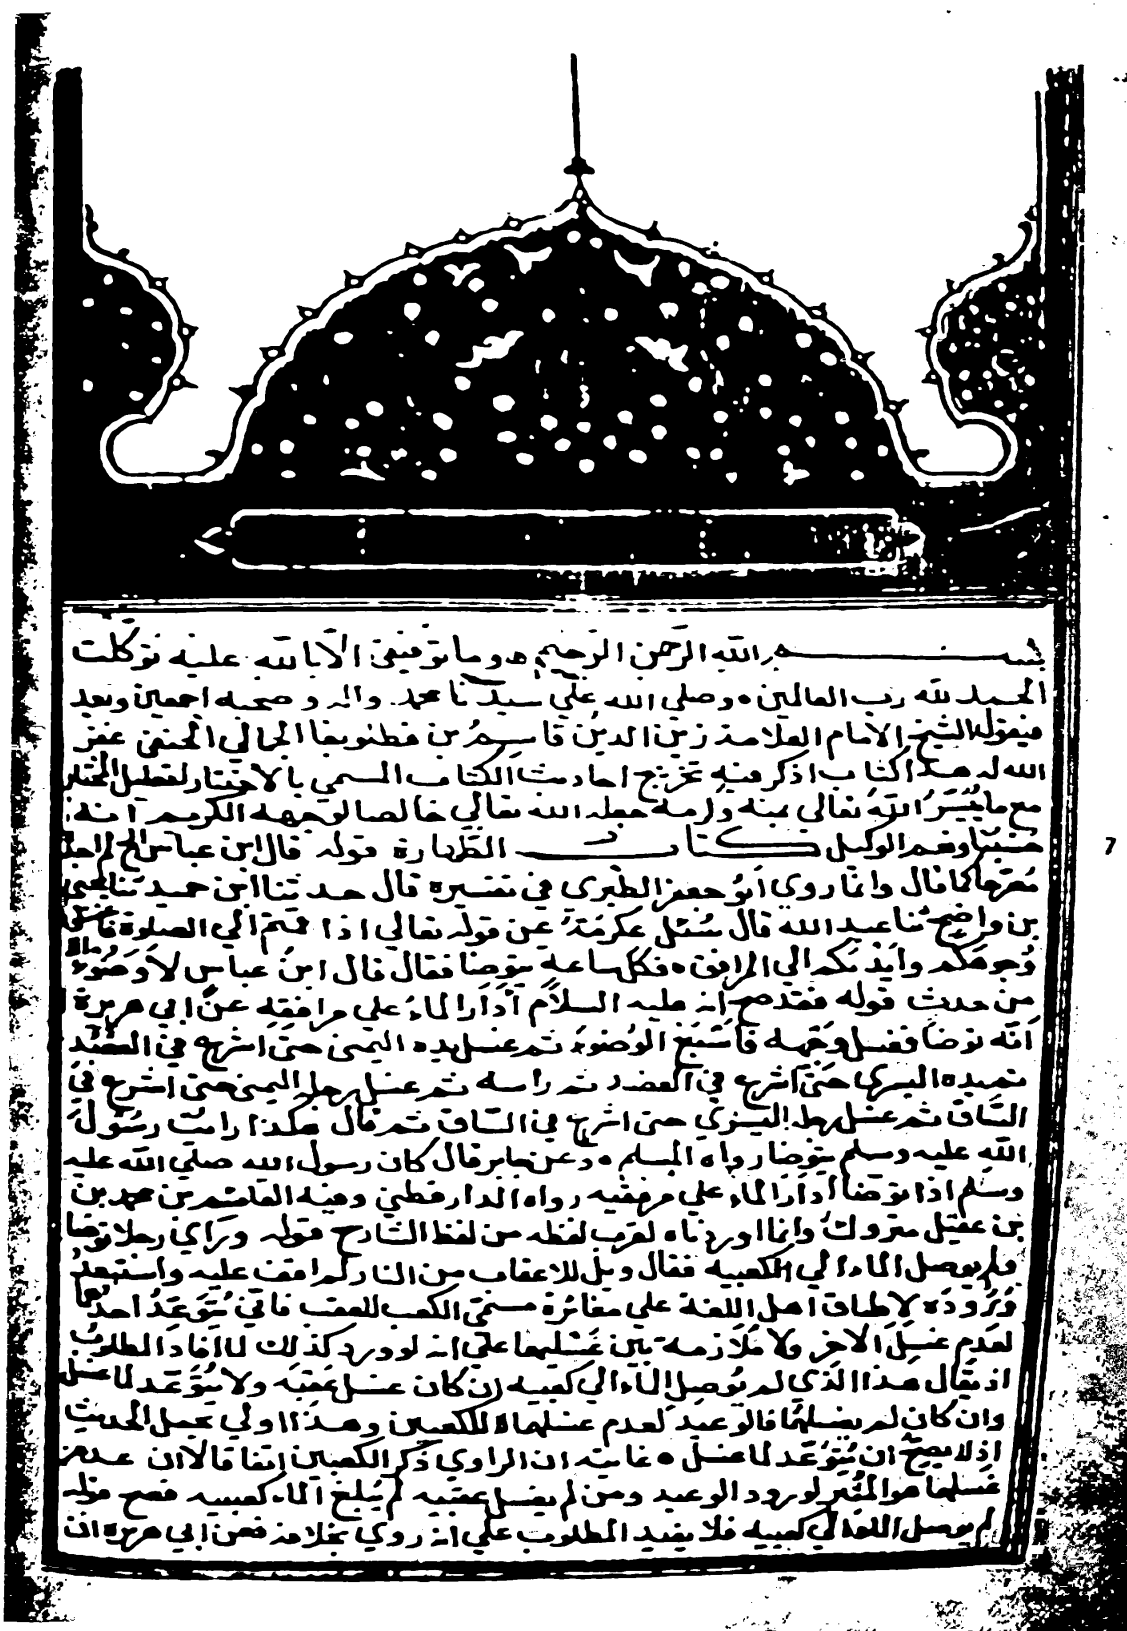 بسم الله الرحمن الرحيم وما توفيقي الا بالله عليه توكلت
الحمد لله رب العالمين وصلي الله علي سيدنا محمد واله وصحبه اجمعين وبعد
فيقول الشيخ الامام العلامة زين الدين قاسم بن قطلوبغا الجمالي الحنفي غفر
الله له هذا كتاب اذكر فيه تخريج احاديث الكتاب المسمي بالاختيار لتعليل المختار
مع ما يُيَسِّرُ اللهُ تعالي بمنه وكرمه جعله الله تعالي خالصا لوجهه الكريم انه
حسبنا ونعم الوكيل كتاب الطهارة قوله قال ابن عباس الخ لم اجد
مُخرّجا كما قال وانما روي ابو جعفر الطبري في تفسيره قال حدثنا ابن حميد ثنا يحيي
بن واضح ثنا عبد الله قال سُئل عكرمة عن قوله تعالي اذا قمتم الي الصلوة فاغسلوا
وُجوهكم وايديكم الي المرافق فكل ساعة يتوضا فقال قال ابن عباس لا وضوء الا
من حدث قوله فقد صح انه عليه السلام أدار الماء علي مرافقه عن ابي هريرة
انه توضا فغسل وجهه فاسبغ الوُضوء ثم غسل يده اليمني حتي اشرع في العضد
ثم يده اليسري حتي اشرع في العضد ثم راسه ثم غسل رجله اليمني حتي اشرع في
الساق ثم غسل رجله اليسري حتي اشرع في الساق ثم قال هكذا رايت رسول
الله عليه وسلم يتوضا رواه المسلم وعن جابر قال كان رسول الله صلي الله عليه
وسلم اذا توضأ أدار الماء علي مرفقيه رواه الدارقطني وفيه القاسم بن محمد بن
بن عقيل متروك وانما اوردناه لقرب لفظه من لفظ الشارح قوله وراي رجلا توضا
ولم يوصل الماء الي الكعبيه فقال ويل للاعقاب من النار لم اقف عليه واستبعد
وُرُوده لاطباق اهل اللغة علي مغائرة مسمي الكعب للعقب فاني يُتَوعَّدُ احدهما
لعدم غسل الاخر ولا مُلازمة بين غسليهما علي انه لو ورد كذلك لما افاد المطلوب
اذ يقال هذا الذي لم يُوصل الماء الي كعبيه إن كان غسل عقبه ولا يُتوعَّد لما غسل
وان كان لم يغسلهما فالوعيد لعدم غسلهما لا للكعبين وهذا اولي بحمل الحديث
اذ لا يصح ان يُتَوعّد لما غسل غايته ان الراوي ذكر الكعبين اتفاقا لا ان عدم
غسلها هو المثير لورود الوعيد ومن لم يغسل عقبيه لم يُبلغ الماء كعبيه فصح قوله
لم يوصل الماء الي كعبيه فلا يفيد المطلوب علي انه روي بخلافه فعن ابي هريرة ان
7